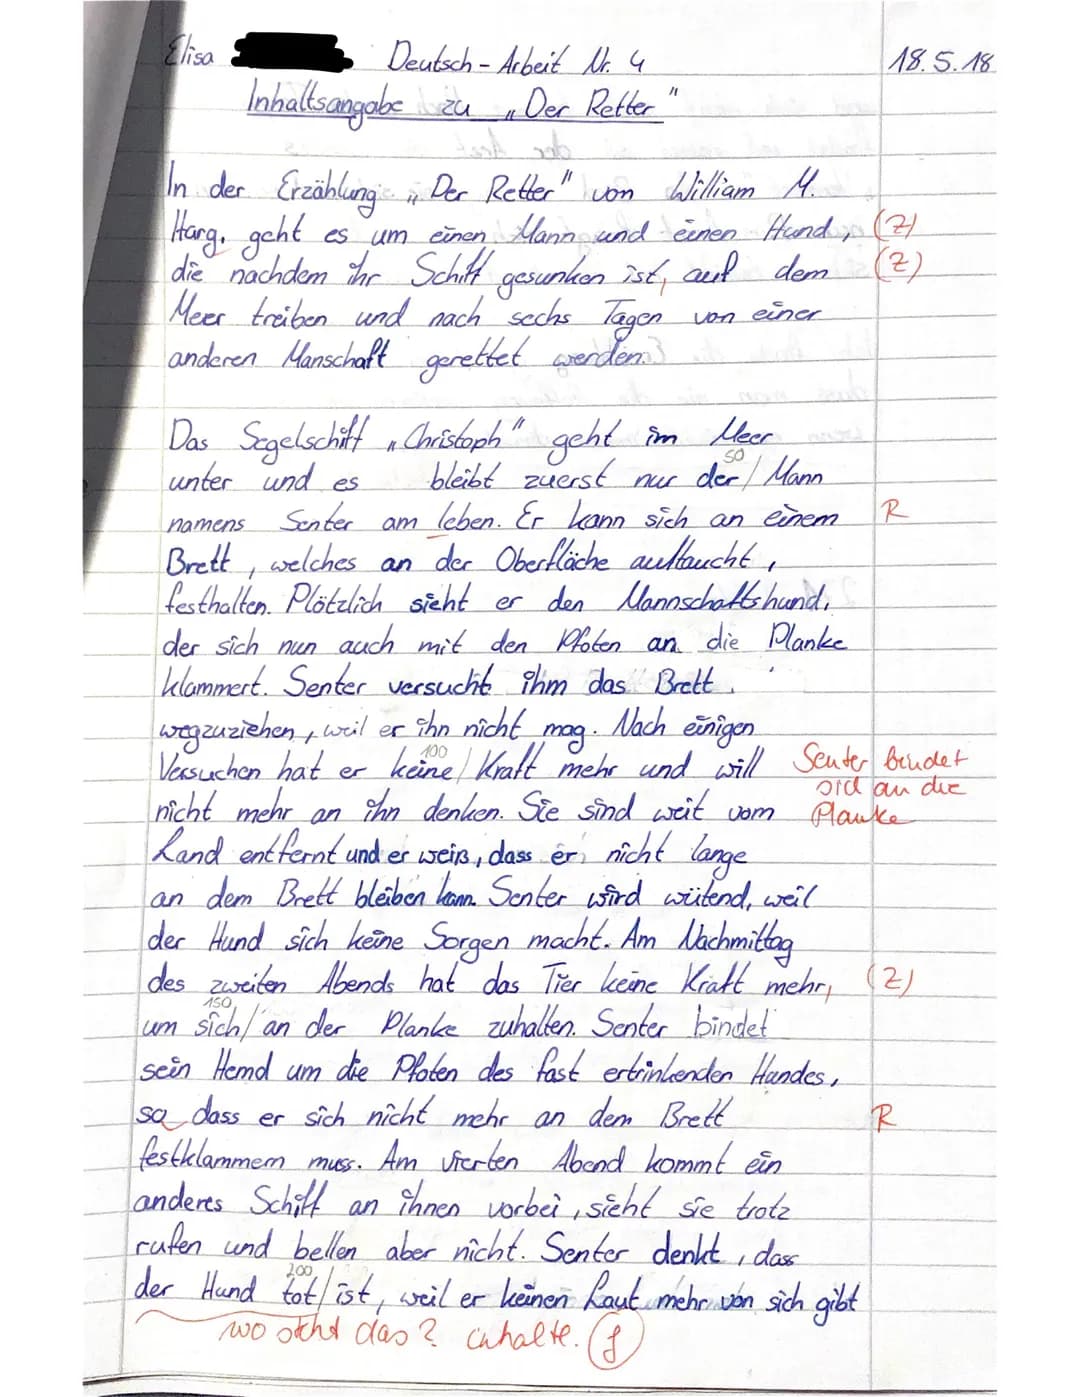 Elisa Deutsch-Arbeit Nr. 4 18.5.18
Inhaltsangabe zu „Der Retter"
In der Erzählung „Der Retter" von William M.
Harg, geht es um einen Mann und einen Hund, (Z)
die nachdem ihr Schiff gesunken ist, auf dem (Z)
Meer treiben und nach sechs Tagen von einer
anderen Manschaft gerettet werden.
Das Segelschiff „Christoph" geht im Meer
50
unter und es bleibt zuerst nur der/ Mann
namens Senter am leben. Er kann sich an einem R
Brett, welches an der Oberfläche auftaucht,
festhalten. Plötzlich sieht er den Mannschaftshund,
der sich nun auch mit den Pfoten an die Planke
klammert. Senter versucht ihm das Brett
wegzuziehen, weil er ihn nicht mag. Nach einigen
100
Versuchen hat er keine/ Kraft mehr und will Senter bindet
sich an die
nicht mehr an ihn denken. Sie sind weit vom Planke
Land entfernt und er weiß, dass er nicht lange
an dem Brett bleiben kann. Senter wird wütend, weil
der Hund sich keine Sorgen macht. Am Nachmittag
des zweiten Abends hat das Tier keine Kraft mehr, (Z)
150
um sich/ an der Planke zuhalten. Senter bindet
sein Hemd um die Pfoten des fast ertrinkenden Hundes,
so dass er sich nicht mehr an dem Brett R
festklammern muss. Am vierten Abend kommt ein
anderes Schiff an ihnen vorbei, sieht sie trotz
rufen und bellen aber nicht. Senter denkt, dass
200
der Hund tot/ ist, weil er keinen Laut mehr von sich gibt
wo steht das? Inhalte. f